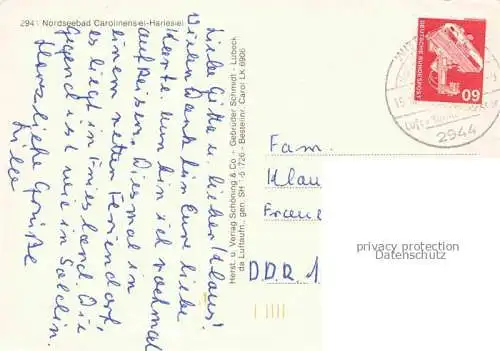 2941 Nordseebad Carolinensiel-Harlesiel
Liebe Gitte u. lieber Klaus!
Vielen Dank für Eure liebe
Karte. Nun bin ich nochmal
auf Reisen. Diesmal in
einem netten Feriendorf,
es liegt in Friesland. Die
Gegend ist wie in
Herzliche Grüße
Herst. u. Verlag Schöning & Co - Gebrüder Schmidt - Lübeck
da Luftaufn., gen. SH 1-6 1726 - Bestellnr. Carol LK 6906
DEUTSCHE BUNDESPOST
60
2944
Fam.
Klau
DDR 1
privacy protection
Datenschutz